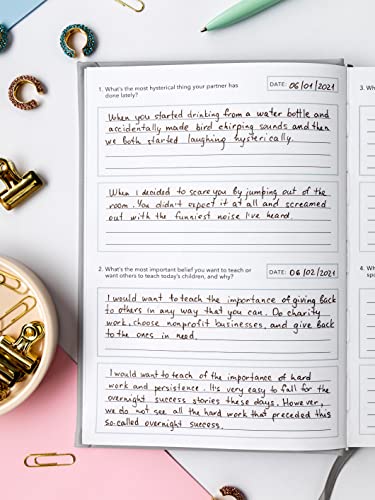 1. What's the most hysterical thing your partner has
done lately?
DATE: 06/01/2021
When you started drinking from a water bottle and
accidentally made bird chirping sounds and then
we both started laughing hysterically.
When I decided to scare you by jumping out of the
room. You didn't expect it at all and screamed
out with the funniest noise I've heard.
2. What's the most important belief you want to teach or
want others to teach today's children, and why?
DATE: 06/02/2021
I would want to teach the importance of giving back
to others in any way that you can. Do charity
work, choose nonprofit businesses, and give back
to the ones in need.
I would want to teach of the importance of hard
work and persistence. It's very easy to fall for the
overnight success stories these days. However,
we do not see all the hard work that preceded this
so-called overnight success.
3. Wha
4.